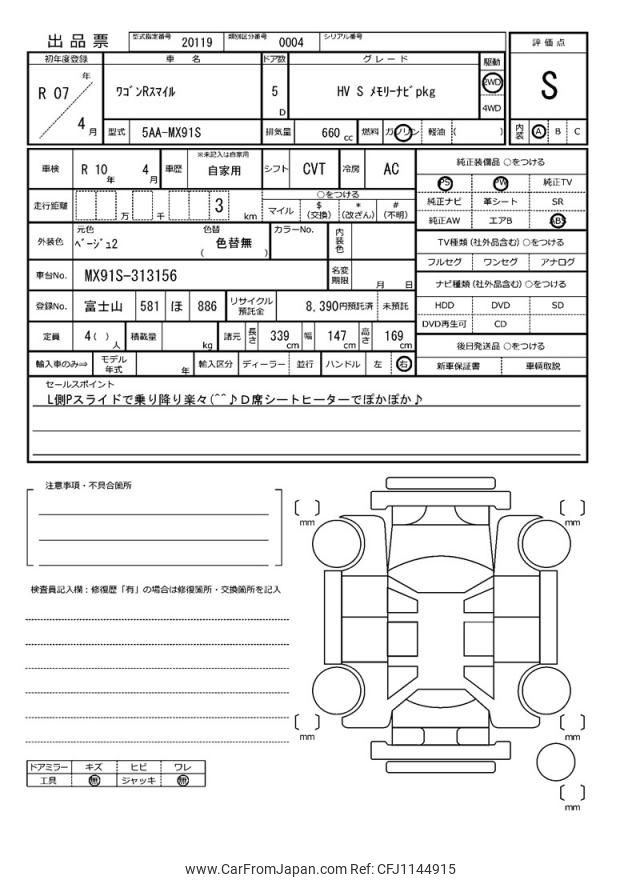 出品票
型式指定番号 20119 類別区分番号 0004 シリアル番号
評価点
初年度登録 車名 ドア数 グレード 駆動
R 07 年
4 月
ワゴンRスマイル
5 D
HV S メモリーナビpkg
2WD
4WD
S
型式 5AA-MX91S 排気量 660 cc 燃料 ガソリン 軽油 ( )
内装 A B C
車検 R 10 年 4 月 車歴 ※未記入は自家用 自家用 シフト CVT 冷房 AC
純正装備品 ○をつける
PS PW 純正TV
走行距離 万 千 3 km
○をつける
マイル $ (交換) * (改ざん) # (不明)
純正ナビ 革シート SR
純正AW エアB ABS
外装色 元色 ベージュ2 色替 色替無 ( ) カラーNo. 内装色
TV種類 (社外品含む) ○をつける
フルセグ ワンセグ アナログ
車台No. MX91S-313156 名変期限 月 日
ナビ種類 (社外品含む) ○をつける
登録No. 富士山 581 ほ 886 リサイクル預託金 8,390円預託済 未預託
HDD DVD SD
DVD再生可 CD
定員 4( ) 人 積載量 kg 諸元 長さ 339 cm 幅 147 cm 高さ 169 cm
後日発送品 ○をつける
輸入車のみ⇒ モデル年式 年 輸入区分 ディーラー 並行 ハンドル 左 右
新車保証書 車輌取説
セールスポイント
L側Pスライドで乗り降り楽々(^^♪D席シートヒーターでぽかぽか♪
注意事項・不具合箇所
[ ] mm
[ ] mm
検査員記入欄：修復歴「有」の場合は修復箇所・交換箇所を記入
[ ] mm
[ ] mm
ドアミラー キズ ヒビ ワレ
工具 無 ジャッキ 無
[ ] mm
www.CarFromJapan.com Ref: CFJ1144915